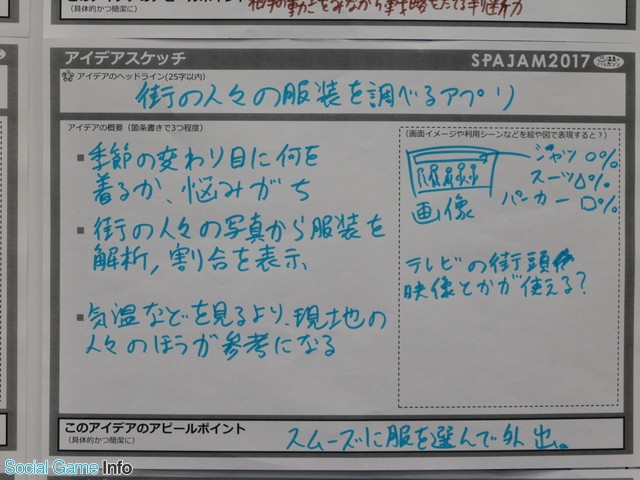 (具体的かつ簡潔に)
アイデアスケッチ
SPAJAM2017
アイデアのヘッドライン(25字以内)
街の人々の服装を調べるアプリ
アイデアの概要(箇条書きで3つ程度)
■季節の変わり目に何を
着るか、悩みがち
■街の人々の写真から服装を
解析,割合を表示、
■気温などを見るより、現地の
人々のほうが参考になる
(画面イメージや利用シーンなどを絵や図で表現すると?)
ジャツ 0%
スーツ△%
パーカー □%
画像
テレビの街頭
映像とかが使える?
このアイデアのアピールポイント
(具体的かつ簡潔に)
スムーズに服を選んで外出。
Social Game Info